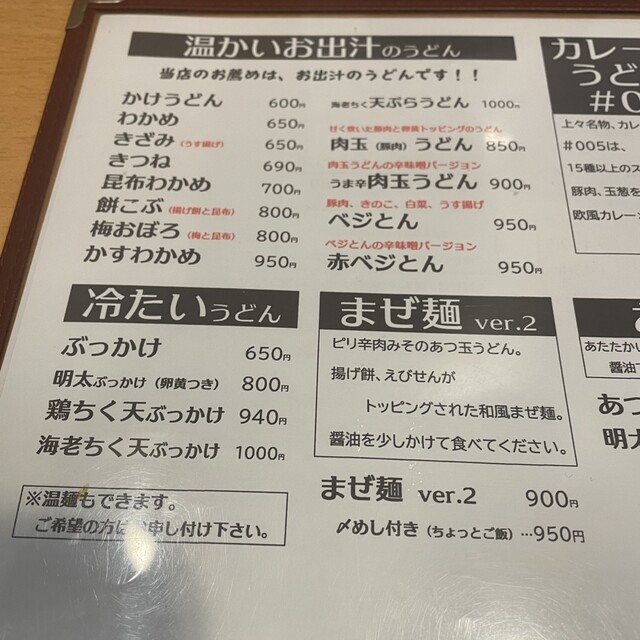 温かいお出汁のうどん
当店のお薦めは、お出汁のうどんです！！
かけうどん 600円
わかめ 650円
きざみ(うす揚げ) 650円
きつね 690円
昆布わかめ 700円
餅こぶ(揚げ餅と昆布) 800円
梅おぼろ(梅と昆布) 800円
かすわかめ 950円
海老ちく天ぷらうどん 1000円
甘く炊いた豚肉と卵黄トッピングのうどん
肉玉(豚肉)うどん 850円
肉玉うどんの辛味噌バージョン
うま辛肉玉うどん 900円
豚肉、きのこ、白菜、うす揚げ
ベジとん 950円
ベジとんの辛味噌バージョン
赤ベジとん 950円
カレー
うど
#0
上々名物、カレ
#005は、
15種以上のス
豚肉、玉葱を
欧風カレー
冷たいうどん
ぶっかけ 650円
明太ぶっかけ(卵黄つき) 800円
鶏ちく天ぶっかけ 940円
海老ちく天ぶっかけ 1000円
※温麺もできます。
ご希望の方はお申し付け下さい。
まぜ麺 ver.2
ピリ辛肉みそのあつ玉うどん。
揚げ餅、えびせんが
トッピングされた和風まぜ麺。
醤油を少しかけて食べてください。
まぜ麺 ver.2 900円
〆めし付き(ちょっとご飯)…950円
あたたかい
醤油で
あつ
明太